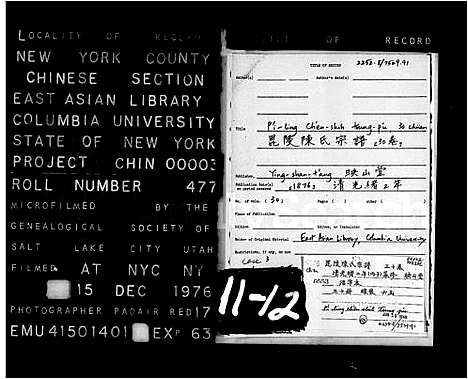 LOCALITY OF RECORD
NEW YORK COUNTY
CHINESE SECTION
EAST ASIAN LIBRARY
COLUMBIA UNIVERSITY
STATE OF NEW YORK
PROJECT CHIN 00003
ROLL NUMBER 477
MICROFILMED BY THE
GENEALOGICAL SOCIETY OF
SALT LAKE CITY UTAH
FILMED AT NYC NY
15 DEC 1976
PHOTOGRAPHER PADAIR RED 17
EMU 41501401 EXP 63
OF RECORD
TITLE OF RECORD 2252.8/7509.91
Author's Date(s)
Title Pi-ling Chen-shih tsung-pu 30 chüan
毘陵陳氏宗譜 30卷
Publisher Ying-shan-t'ang 映山堂
Publication Date(s) or period covered (1876) 清光緒2年
No. of vols. (30) Pages ( ) other ( )
Place of Publication
Edition Editor, or Translator
Owner of Original Material East Asian Library, Columbia University
Restrictions, if any, on use
case 3
11-12
毘陵陳氏宗譜 三十卷